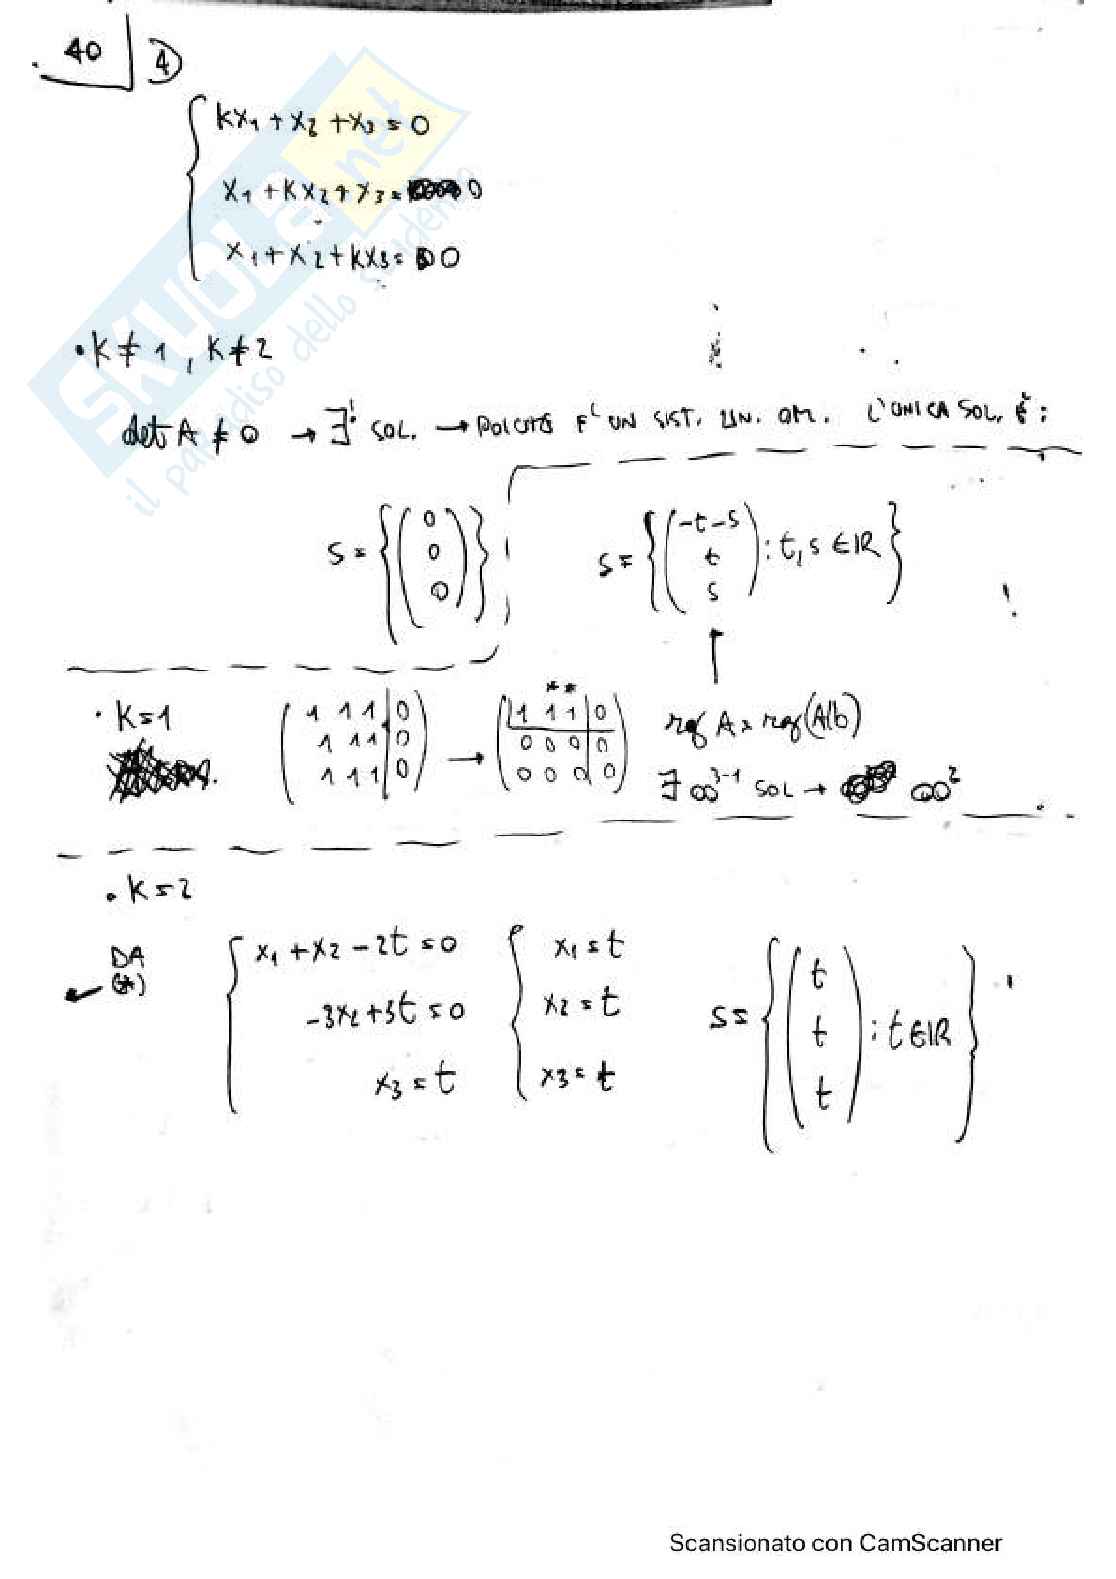 40 | 4
kx₁ + x₂ + x₃ = 0
x₁ + kx₂ + x₃ = 0
x₁ + x₂ + kx₃ = 0
SKUOLA.net
il paradiso dello studente
• k ≠ 1, k ≠ 2
det A ≠ 0 → ∃! SOL. → POICHÈ E' UN SIST. LIN. OM. L'UNICA SOL. È:
S = {(0 0 0)} S = {(-t-s t s) : t, s ∈ ℝ}
• k = 1 (1 1 1 | 0 1 1 1 | 0 1 1 1 | 0) → (1 1 1 | 0 0 0 0 | 0 0 0 0 | 0) ** rg A = rg(A|b)
∃ ∞³⁻¹ SOL → ∞²
• k = 2
DA (*)
x₁ + x₂ - 2t = 0 x₁ = t
-3x₂ + 3t = 0 x₂ = t S = {(t t t) : t ∈ ℝ}
x₃ = t x₃ = t
Scansionato con CamScanner